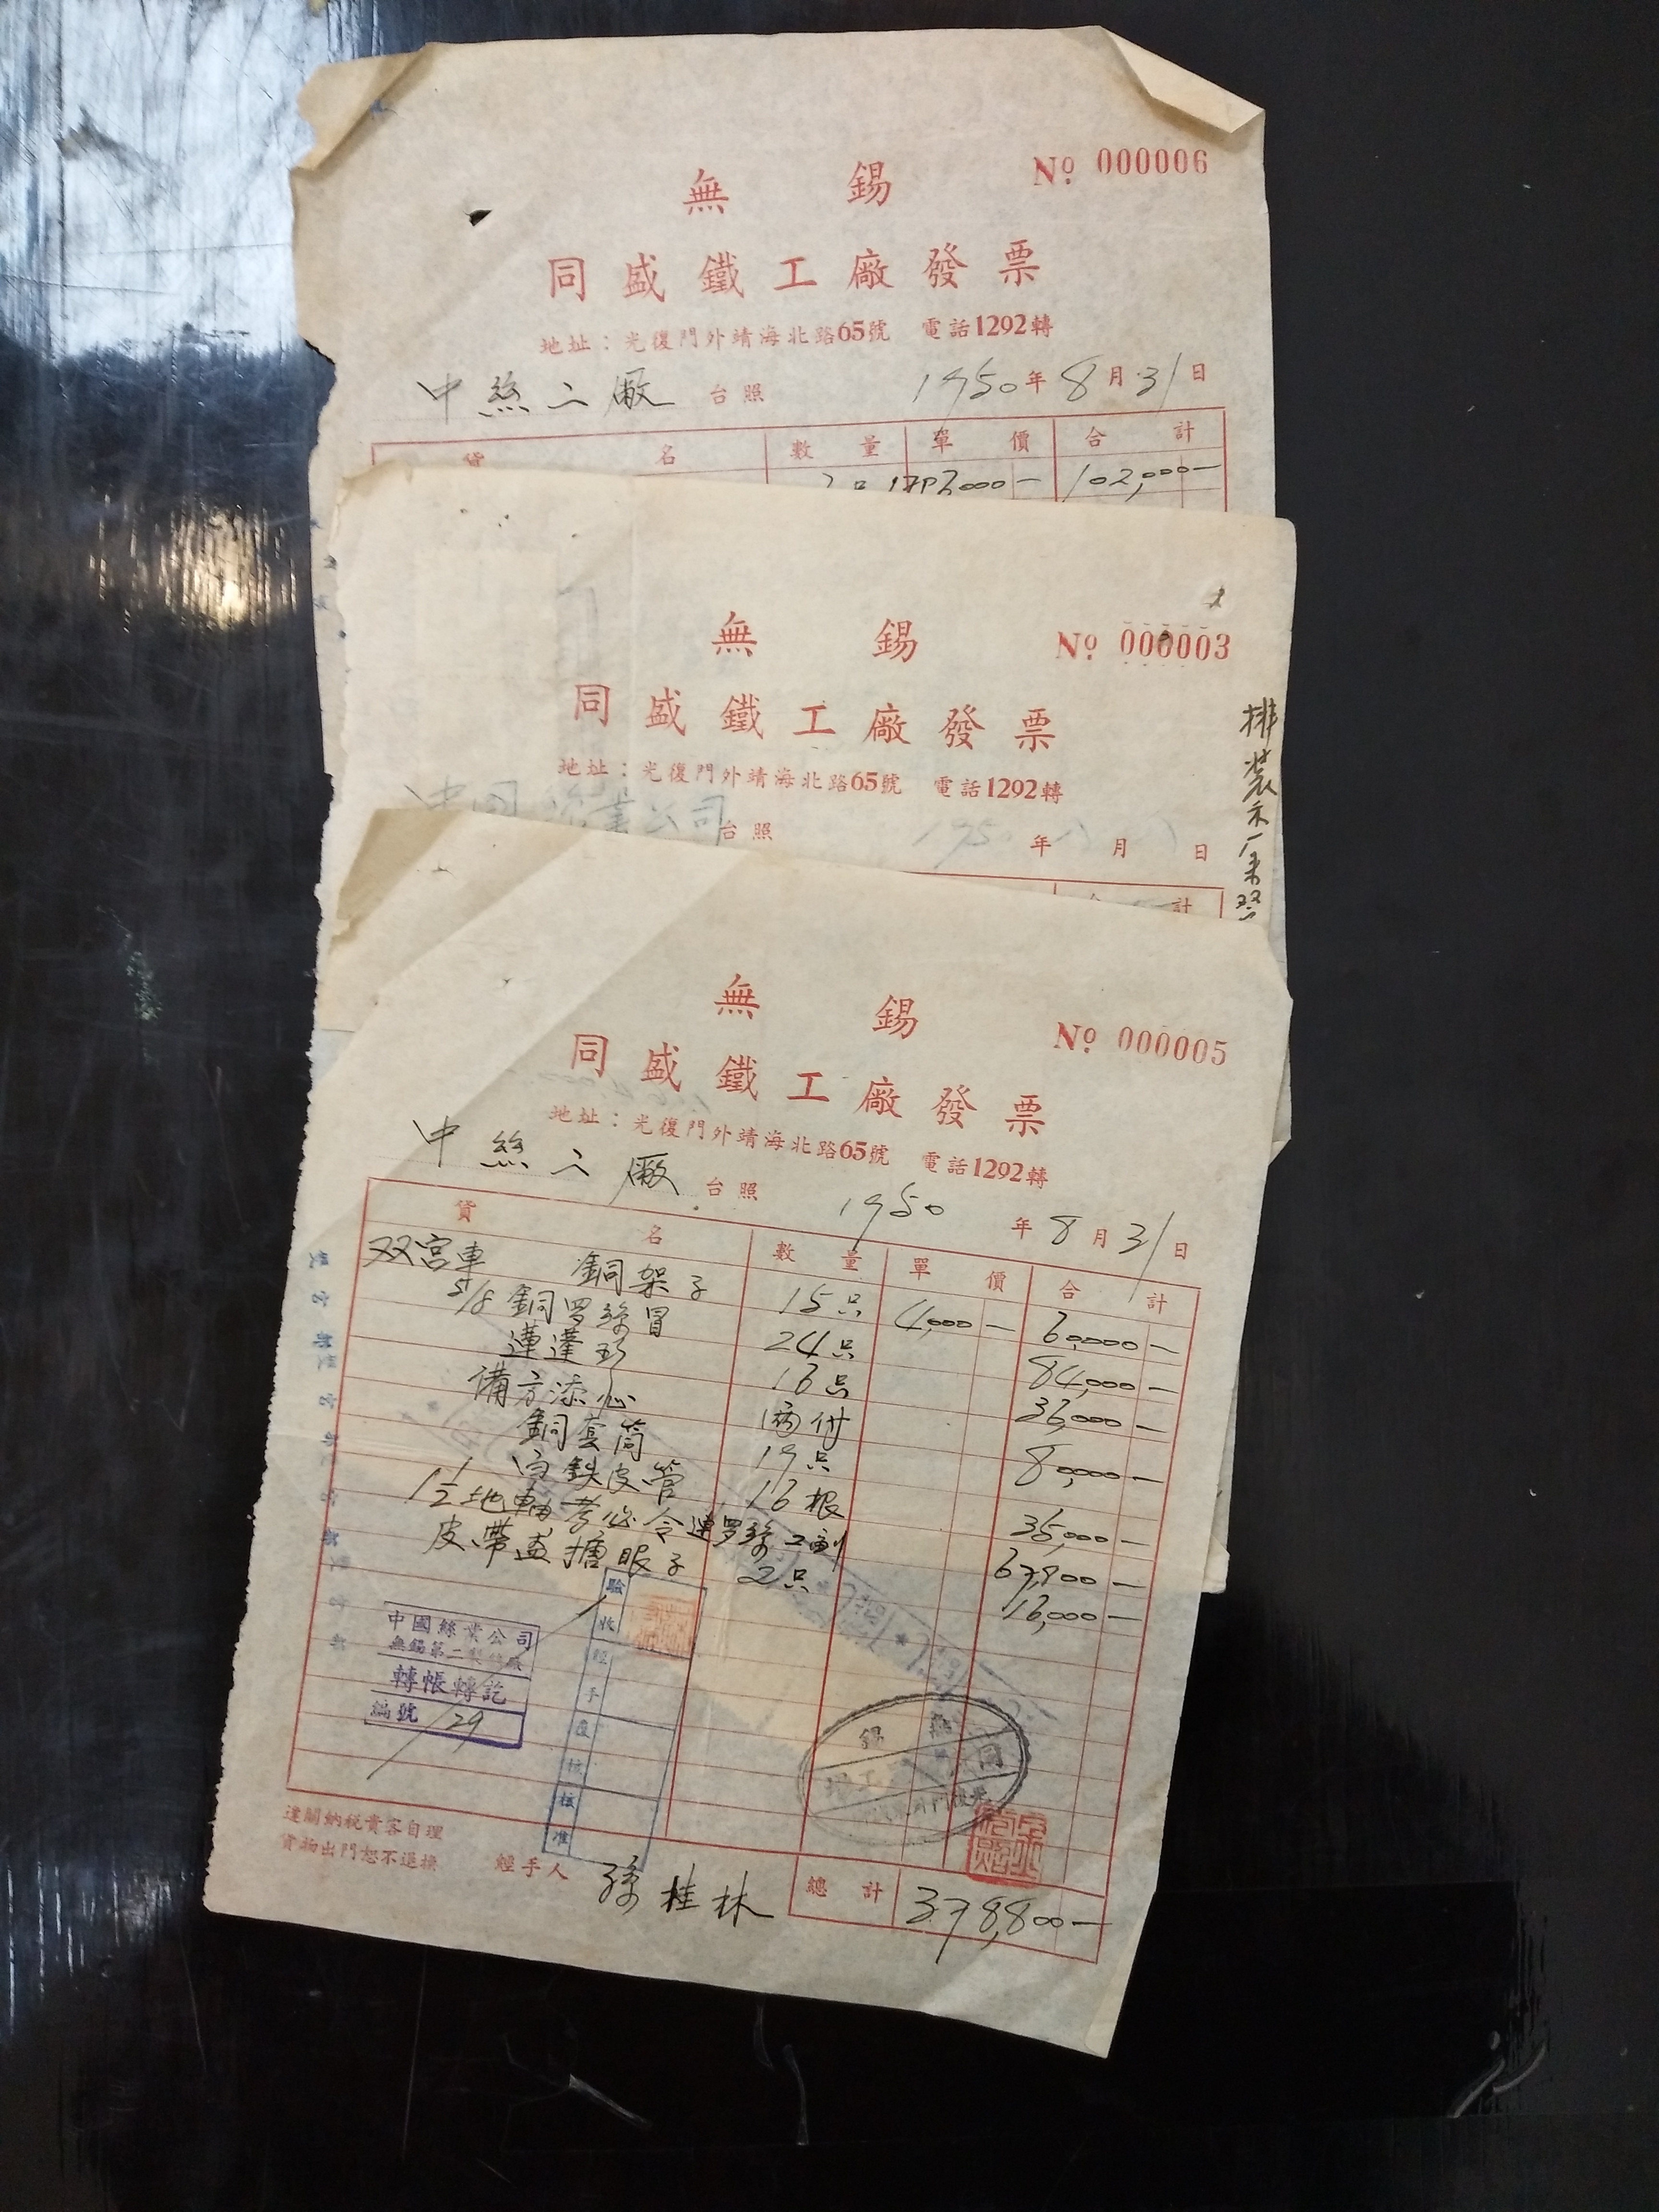 無 錫 No. 000006
同盛鐵工廠發票
地址：光復門外靖海北路65號 電話1292轉
中絲二廠 台照 1950年8月31日
貨 名 數 量 單 價 合 計
102,000—
無 錫 No. 000003
同盛鐵工廠發票
地址：光復門外靖海北路65號 電話1292轉
中国絲業公司 台照 年 月 日
計
無 錫 No. 000005
同盛鐵工廠發票
地址：光復門外靖海北路65號 電話1292轉
中絲二廠 台照 1950年8月31日
貨 名 數 量 單 價 合 計
双宮車 銅架子 15只 4,000— 60,000—
5/8銅罗絲冒 24只 84,000—
16只 36,000—
兩付 80,000—
銅套筒 19只 35,000—
白鉄皮管 16根 67,800—
1½地軸 16,000—
皮帶盘搪眼子 2只
驗收
經手
復核
核准
中國絲業公司
無錫第二製絲廠
轉帳轉訖
編號 29
運關納税貴客自理
貨物出門恕不退換
經手人 孫桂林
總計 378,800—